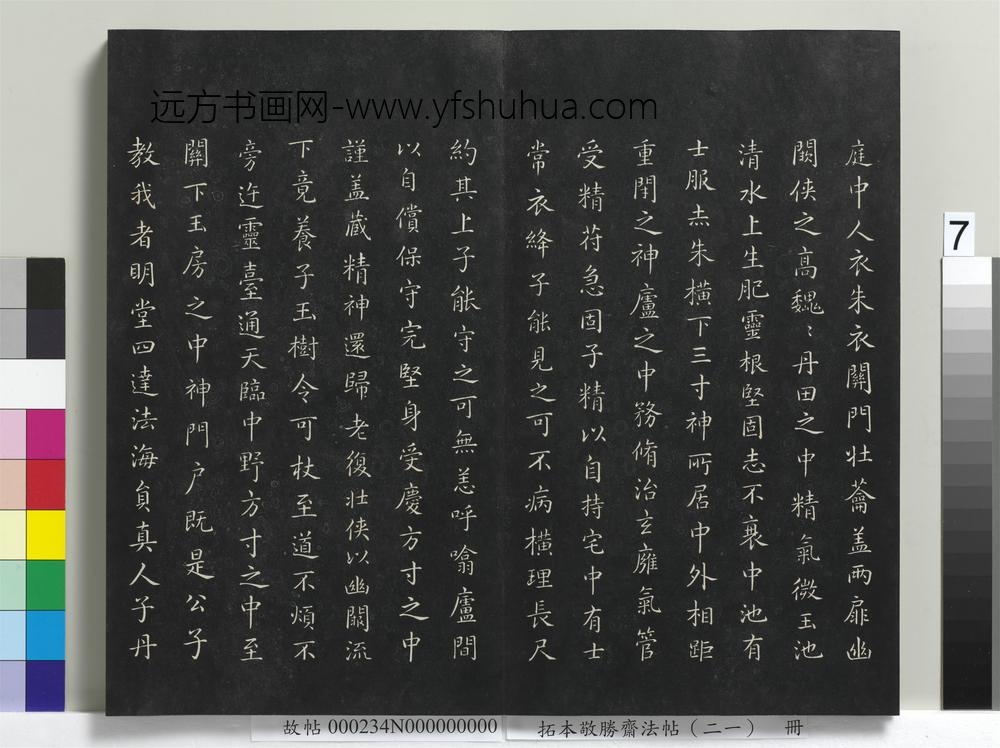 远方书画网-www.yfshuhua.com
庭中人衣朱衣關門壮蘥盖兩扉幽
闕侠之高魏〻丹田之中精氣微玉池
清水上生肥靈根堅固志不衰中池有
士服赤朱橫下三寸神所居中外相距
重閇之神廬之中務脩治玄廱氣管
受精苻急固子精以自持宅中有士
常衣絳子能見之可不病橫理長尺
約其上子能守之可無恙呼噏廬間
以自償保守完堅身受慶方寸之中
謹盖藏精神還歸老復壯侠以幽闕流
下竟養子玉樹令可杖至道不煩不
旁迕靈臺通天臨中野方寸之中至
關下玉房之中神門户既是公子
教我者明堂四達法海負真人子丹
7
故帖 000234N000000000
拓本敬勝齋法帖（二一） 冊